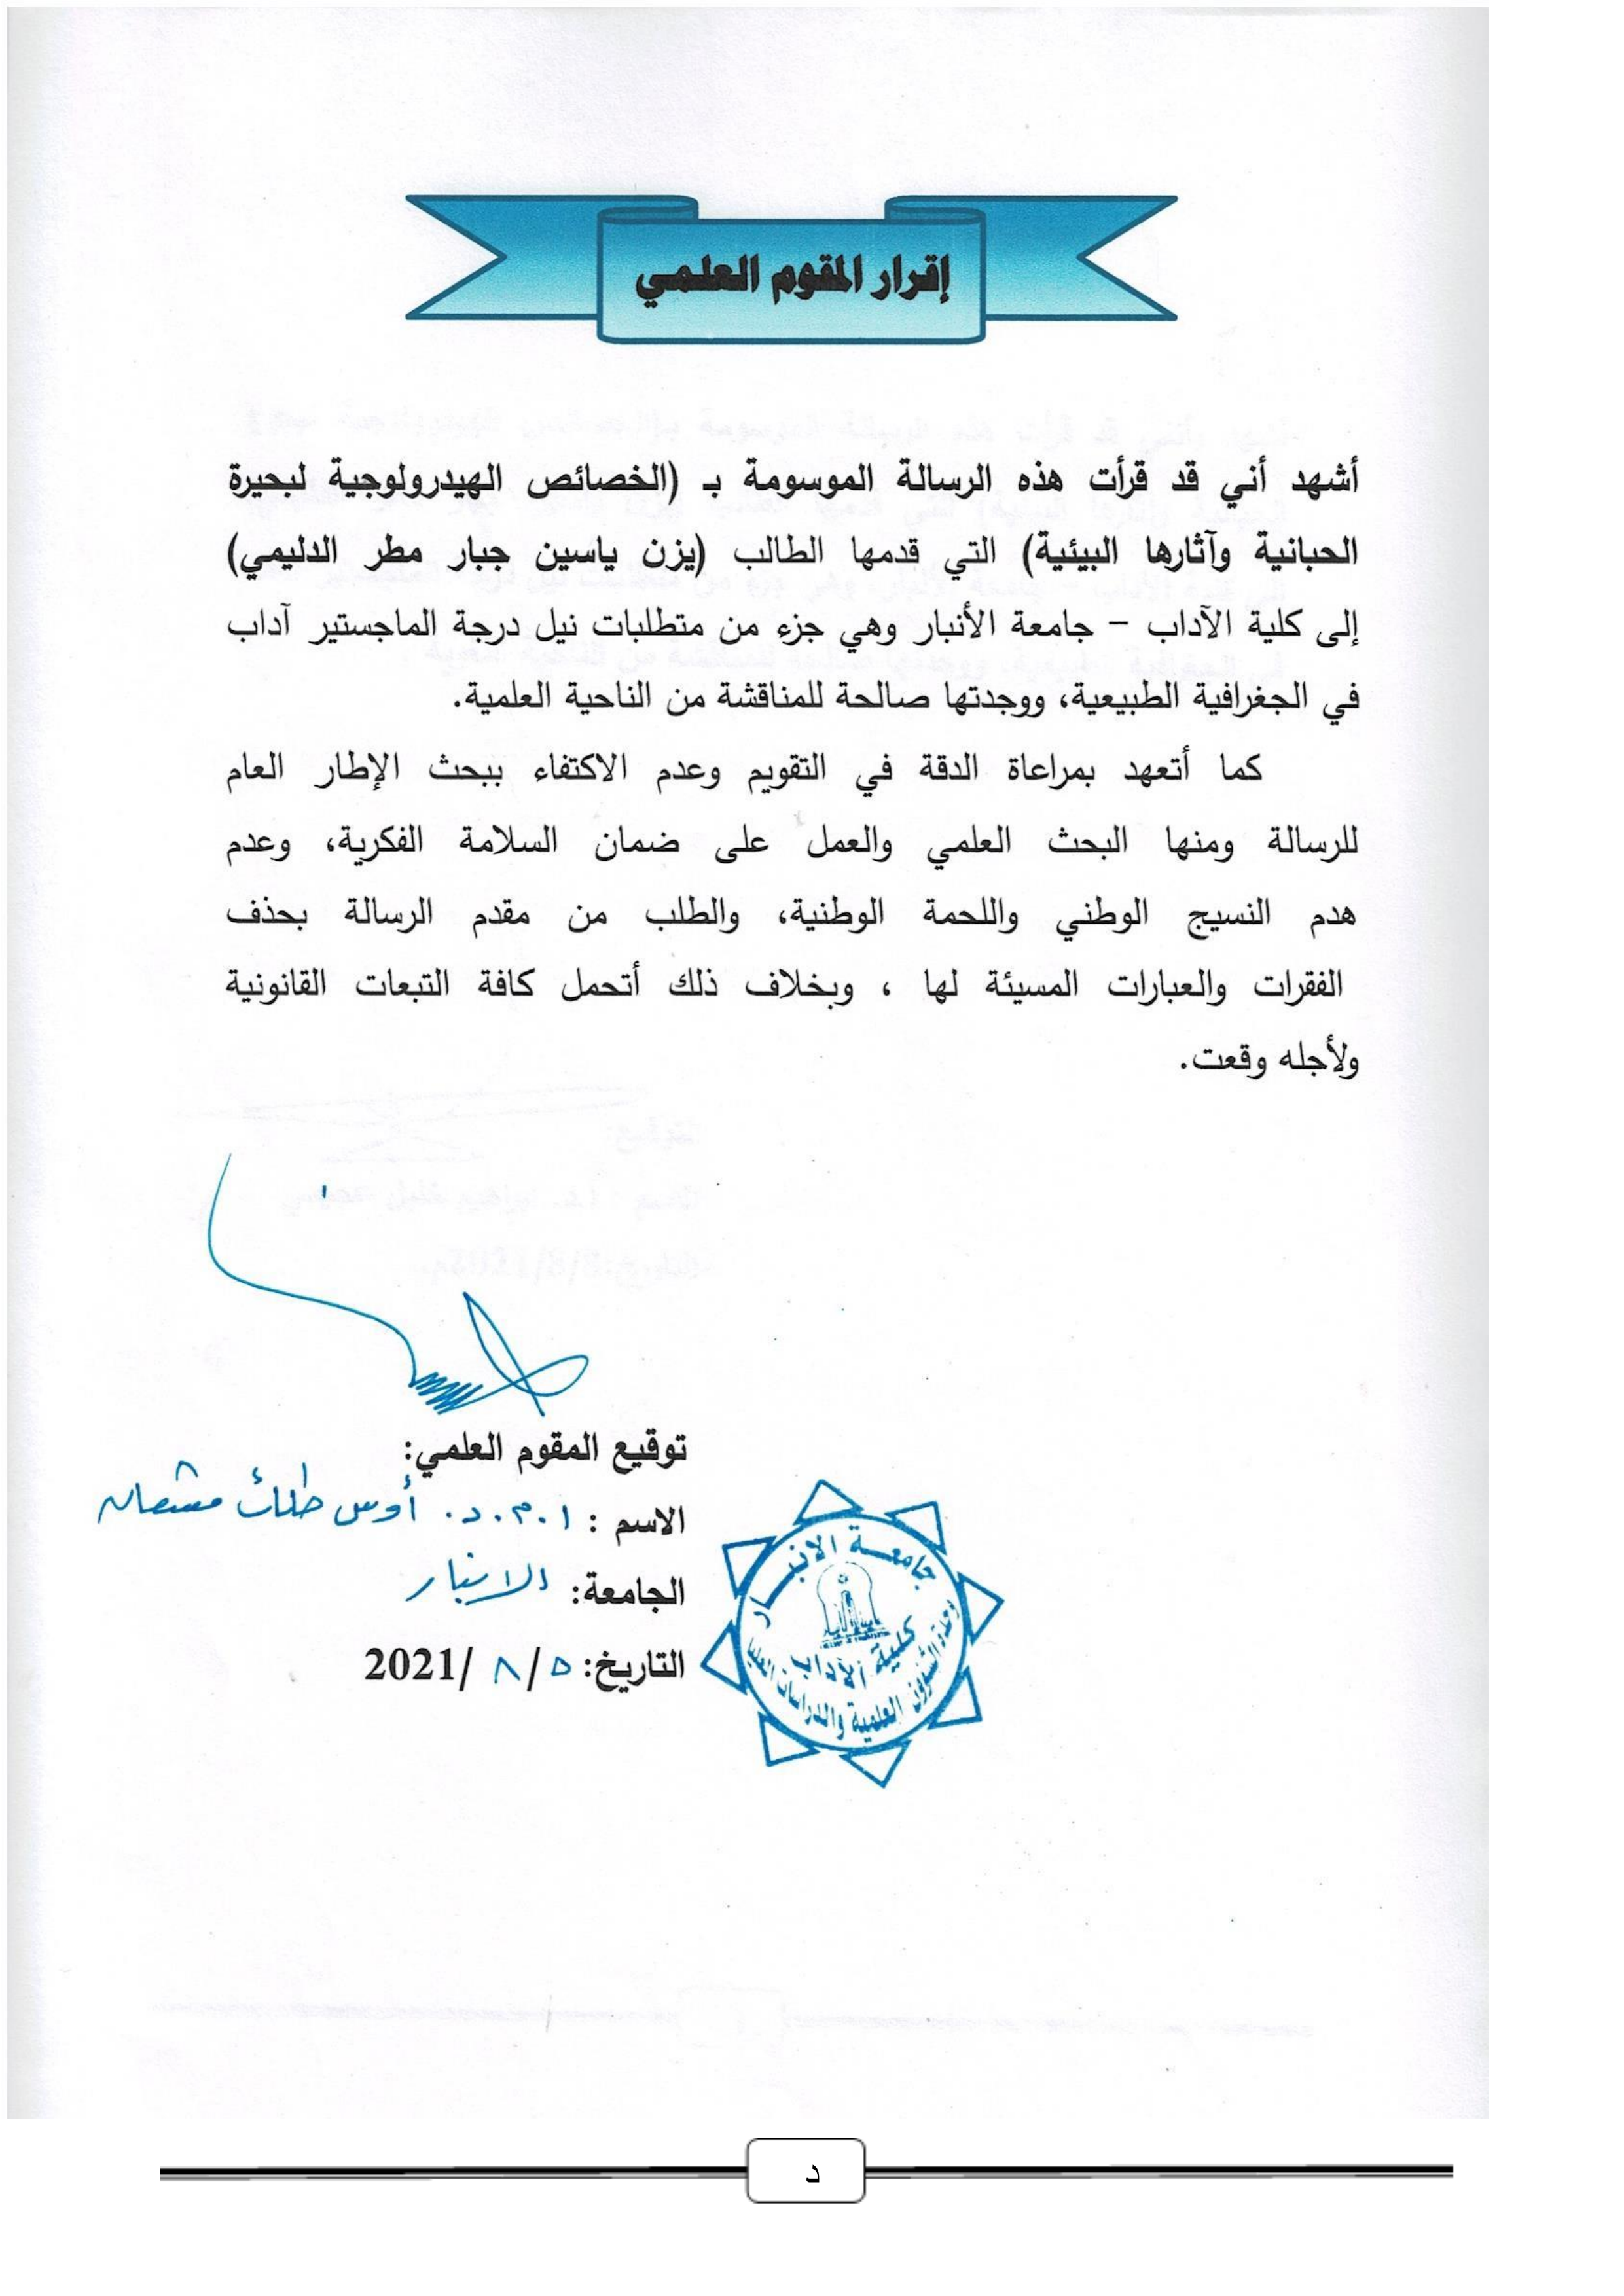 إقرار المقوم العلمي
أشهد أني قد قرأت هذه الرسالة الموسومة بـ (الخصائص الهيدرولوجية لبحيرة
الحبانية وآثارها البيئية) التي قدمها الطالب (يزن ياسين جبار مطر الدليمي)
إلى كلية الآداب – جامعة الأنبار وهي جزء من متطلبات نيل درجة الماجستير آداب
في الجغرافية الطبيعية، ووجدتها صالحة للمناقشة من الناحية العلمية.
كما أتعهد بمراعاة الدقة في التقويم وعدم الاكتفاء ببحث الإطار العام
للرسالة ومنها البحث العلمي والعمل على ضمان السلامة الفكرية، وعدم
هدم النسيج الوطني واللحمة الوطنية، والطلب من مقدم الرسالة بحذف
الفقرات والعبارات المسيئة لها ، وبخلاف ذلك أتحمل كافة التبعات القانونية
ولأجله وقعت.
توقيع المقوم العلمي:
الاسم : ا.م.د. أوس طلك مشعان
الجامعة: الانبار
التاريخ: ٥/ ٨ /2021
جامعة الانبار
كلية الآداب
وحدة الشؤون العلمية والدراسات العليا
د